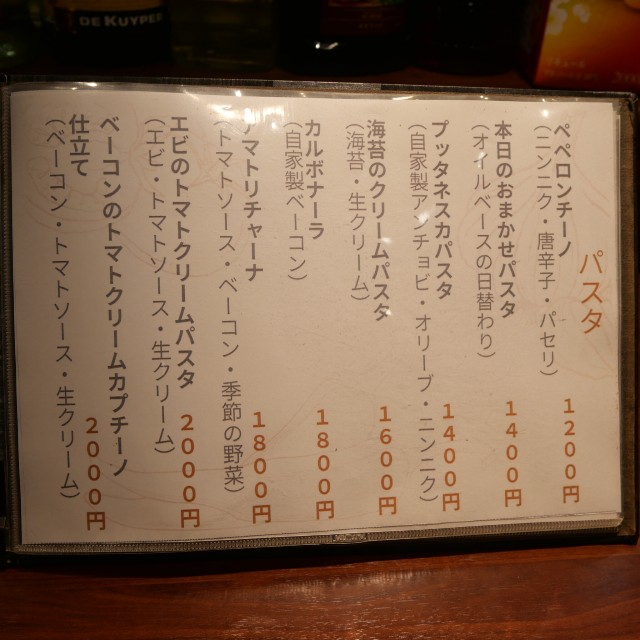 DE KUYPER
パスタ
ペペロンチーノ
(ニンニク・唐辛子・パセリ)
1200円
本日のおまかせパスタ
(オイルベースの日替わり)
1400円
プッタネスカパスタ
(自家製アンチョビ・オリーブ・ニンニク)
1400円
海苔のクリームパスタ
(海苔・生クリーム)
1600円
カルボナーラ
(自家製ベーコン)
1800円
アマトリチャーナ
(トマトソース・ベーコン・季節の野菜)
1800円
エビのトマトクリームパスタ
(エビ・トマトソース・生クリーム)
2000円
ベーコンのトマトクリームカプチーノ
仕立て
(ベーコン・トマトソース・生クリーム)
2000円